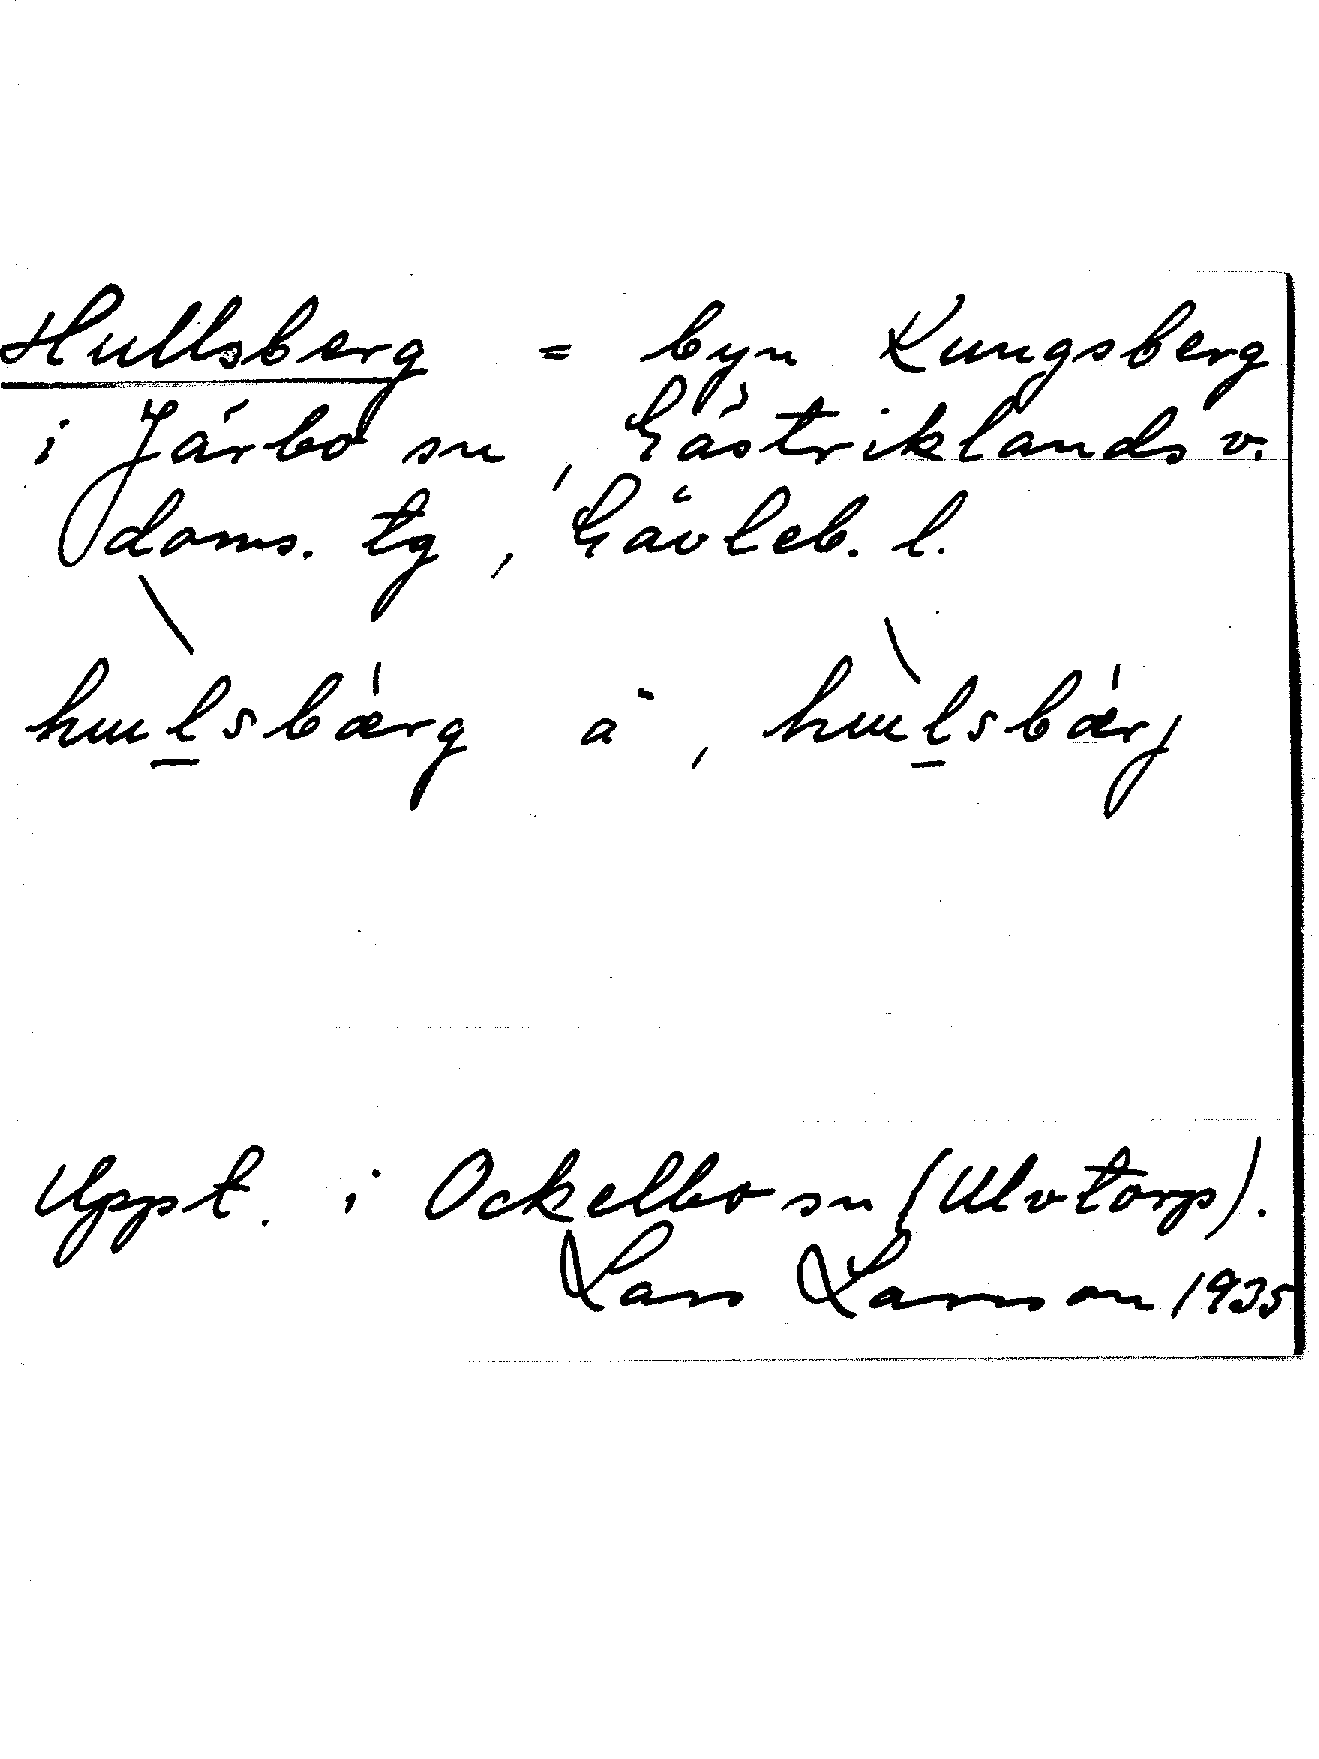 Hullsberg = byn Kungsberg
i Järbo sn, Gästriklands v.
doms. tg, Gävleb. l.
hɯl̠sbærg a, hɯl̠sbærj
Uppt. i Ockelbo sn (Ulvtorp).
Lars Larsson 1935